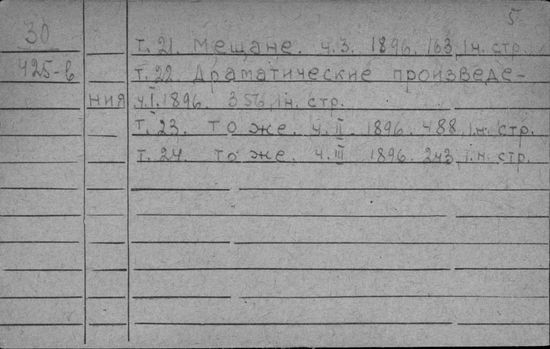 5
30
425-в
т. 21. Мещане. ч. 3. 1896. 163, 1 н. стр.
т. 22. Драматические произведе-
ния ч. I. 1896. 356, 1 н. стр.
т. 23. то же. ч. II. 1896. 488, 1 н. стр.
т. 24. то же. ч. III 1896. 243, 1 н. стр.